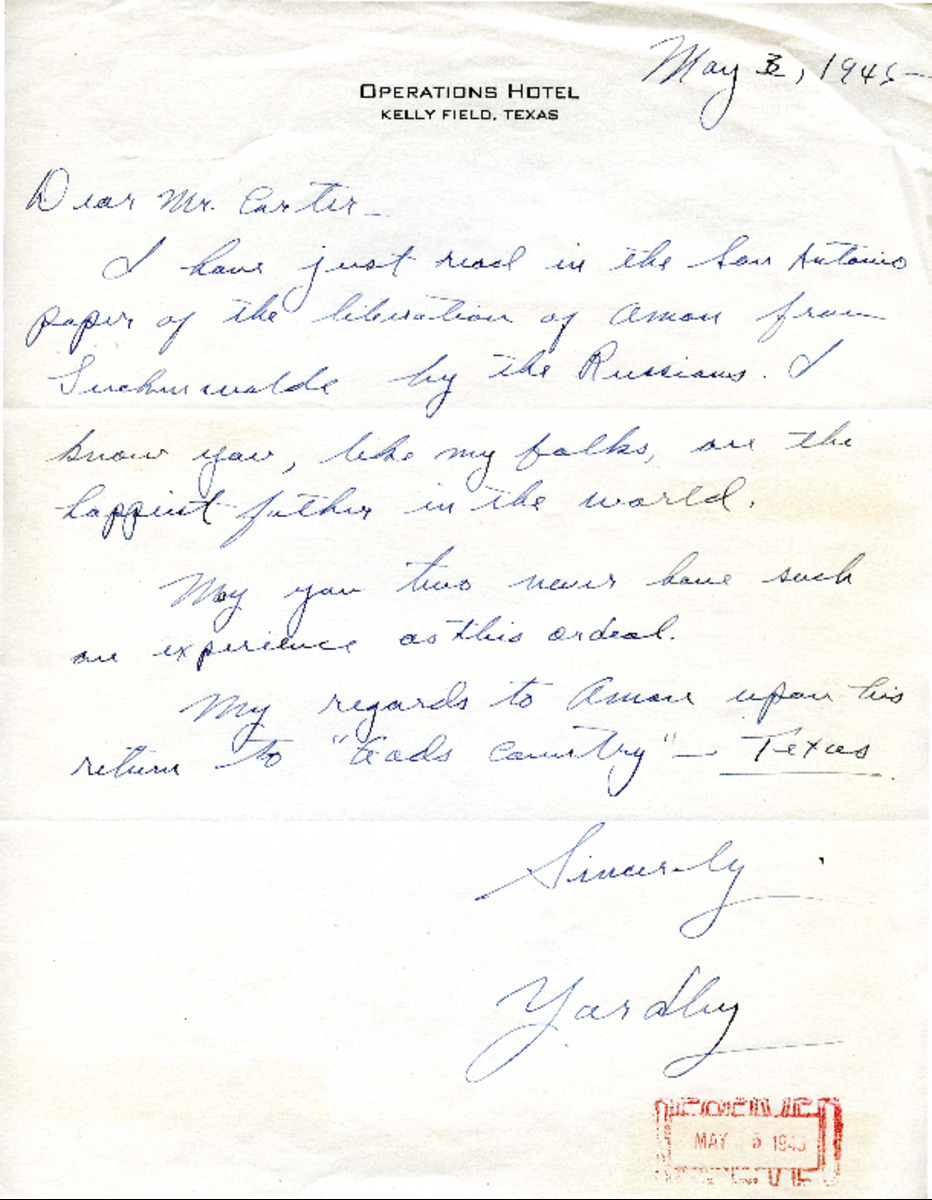 May 3, 1945
OPERATIONS HOTEL
KELLY FIELD, TEXAS
Dear Mr. Carter—
I have just read in the San Antonio
paper of the liberation of Amon from
Luckenwalde by the Russians. I
know you, like my folks, are the
happiest father in the world.
May you two never have such
an experience as this ordeal.
My regards to Amon upon his
return to "Gods country" — Texas
Sincerly
Yardley
RECEIVED
MAY 5 1945